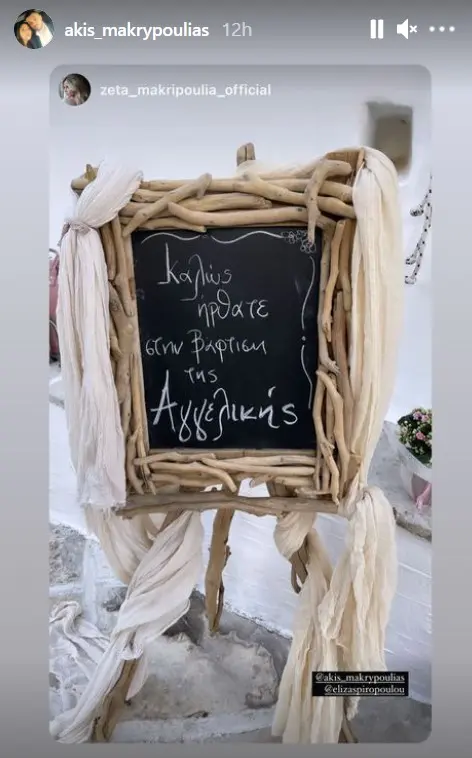 akis_makrypoulias 12h
zeta_makripoulia_official
καλώς
ήρθατε
στην Βάφτιση
της
Αγγελικής
@akis_makrypoulias
@elizaspiropoulou